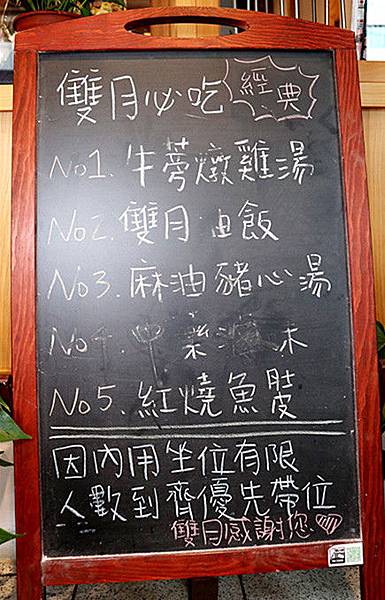 雙月必吃 經典
No1. 牛蒡燉雞湯
No2. 雙月油飯
No3. 麻油豬心湯
No4.
No5. 紅燒魚肚
因內用坐位有限
人數到齊優先帶位
雙月感謝您